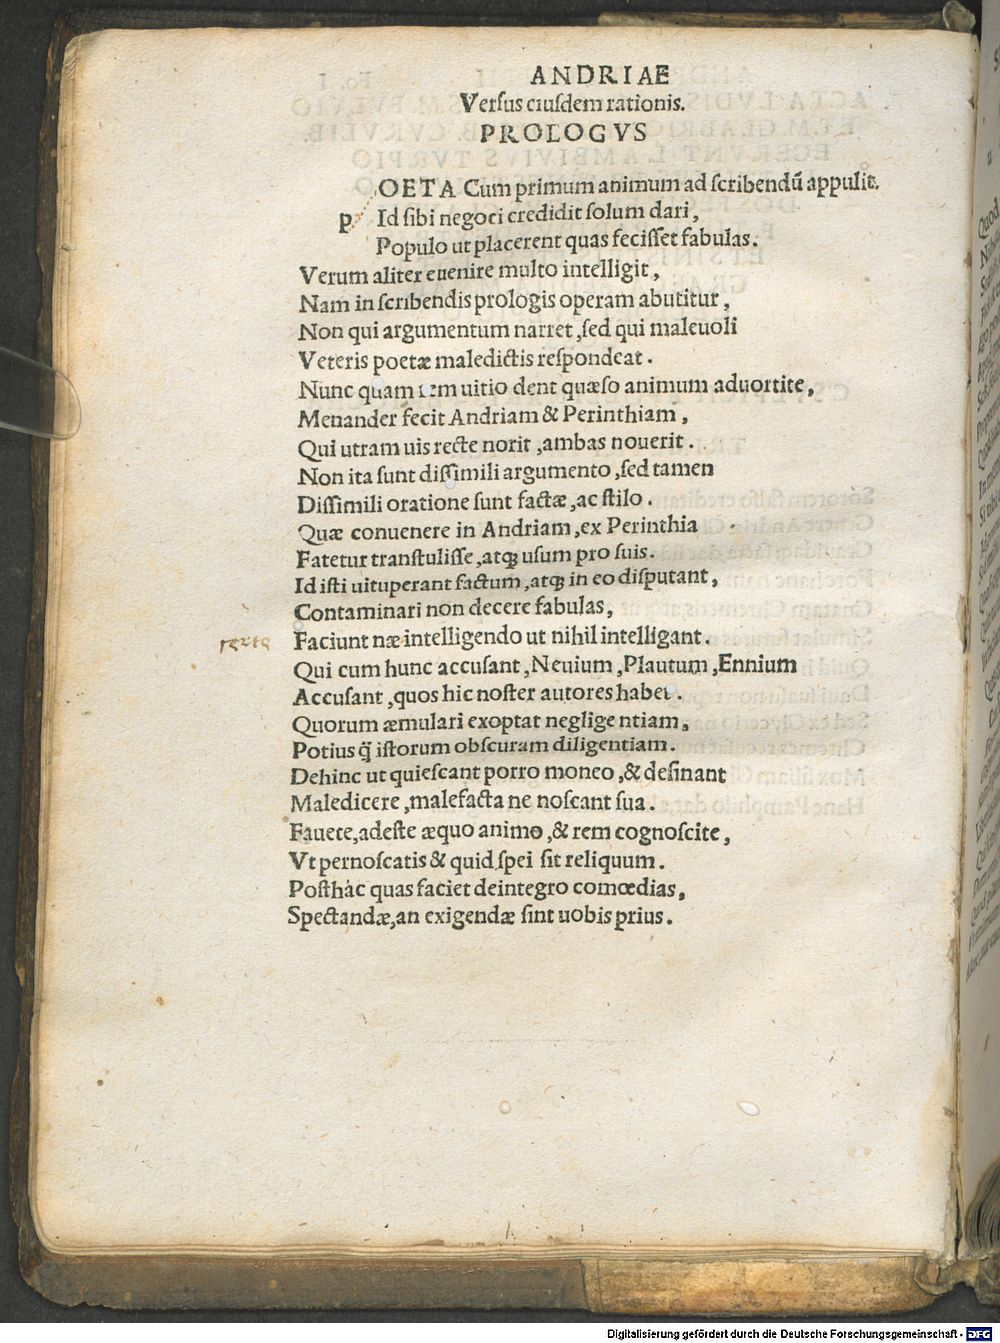 ANDRIAE
Versus eiusdem rationis.
PROLOGVS
pOETA Cum primum animum ad scribendū appulit.
Id sibi negoci credidit solum dari,
Populo ut placerent quas fecisset fabulas.
Verum aliter euenire multo intelligit,
Nam in scribendis prologis operam abutitur,
Non qui argumentum narret, sed qui maleuoli
Veteris poetæ maledictis respondeat.
Nunc quam rem uitio dent quæso animum aduortite,
Menander fecit Andriam & Perinthiam,
Qui utram uis recte norit, ambas nouerit.
Non ita sunt dissimili argumento, sed tamen
Dissimili oratione sunt factæ, ac stilo.
Quæ conuenere in Andriam, ex Perinthia
Fatetur transtulisse, atq; usum pro suis.
Id isti uituperant factum, atq; in eo disputant,
Contaminari non decere fabulas,
Faciunt næ intelligendo ut nihil intelligant.
Qui cum hunc accusant, Neuium, Plautum, Ennium
Accusant, quos hic noster autores habet.
Quorum æmulari exoptat neglige ntiam,
Potius q̄ istorum obscuram diligentiam.
Dehinc ut quiescant porro moneo, & desinant
Maledicere, malefacta ne noscant sua.
Fauete, adeste æquo animo, & rem cognoscite,
Vt pernoscatis & quid spei sit reliquum.
Posthác quas faciet deintegro comœdias,
Spectandæ, an exigendæ sint uobis prius.
Digitalisierung gefördert durch die Deutsche Forschungsgemeinschaft - DFG